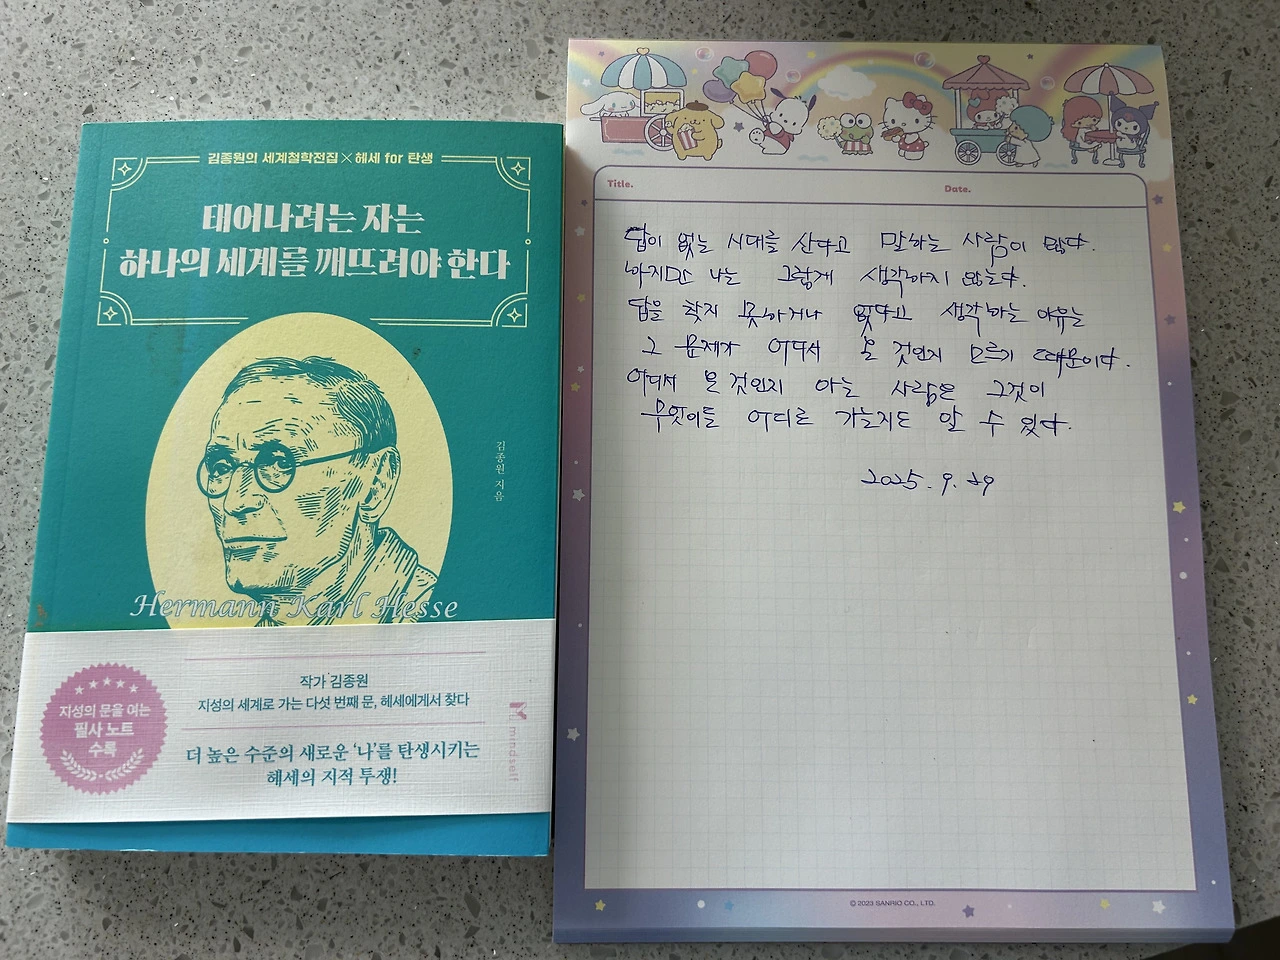 김종원의 세계철학전집×헤세 for 탄생
태어나려는 자는
하나의 세계를 깨뜨려야 한다
김종원 지음
Hermann Karl Hesse
지성의 문을 여는
필사 노트
수록
작가 김종원
지성의 세계로 가는 다섯 번째 문, 헤세에게서 찾다
더 높은 수준의 새로운 ‘나’를 탄생시키는
헤세의 지적 투쟁!
mindself
Title.
Date.
답이 없는 시대를 산다고 말하는 사람이 많다.
하지만 나는 그렇게 생각하지 않는다.
답을 찾지 못하거나 없다고 생각하는 이유는
그 문제가 어디서 온 것인지 모르기 때문이다.
어디서 온 것인지 아는 사람은 그것이
무엇이든 어디로 가는지도 알 수 있다.
2025. 9. 29
© 2023 SANRIO CO., LTD.